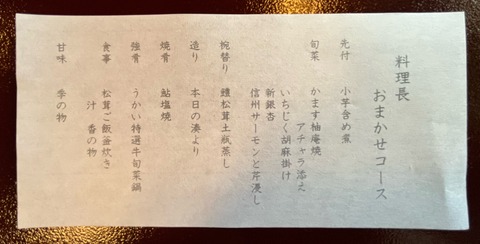 料理長
おまかせコース
先付 小芋含め煮
旬菜 かます柚庵焼
アチャラ添え
いちじく胡麻掛け
新銀杏
信州サーモンと芹浸し
椀替り 鱧松茸土瓶蒸し
造り 本日の湊より
焼肴 鮎塩焼
強肴 うかい特選牛旬菜鍋
食事 松茸ご飯釜炊き
汁 香の物
甘味 季の物